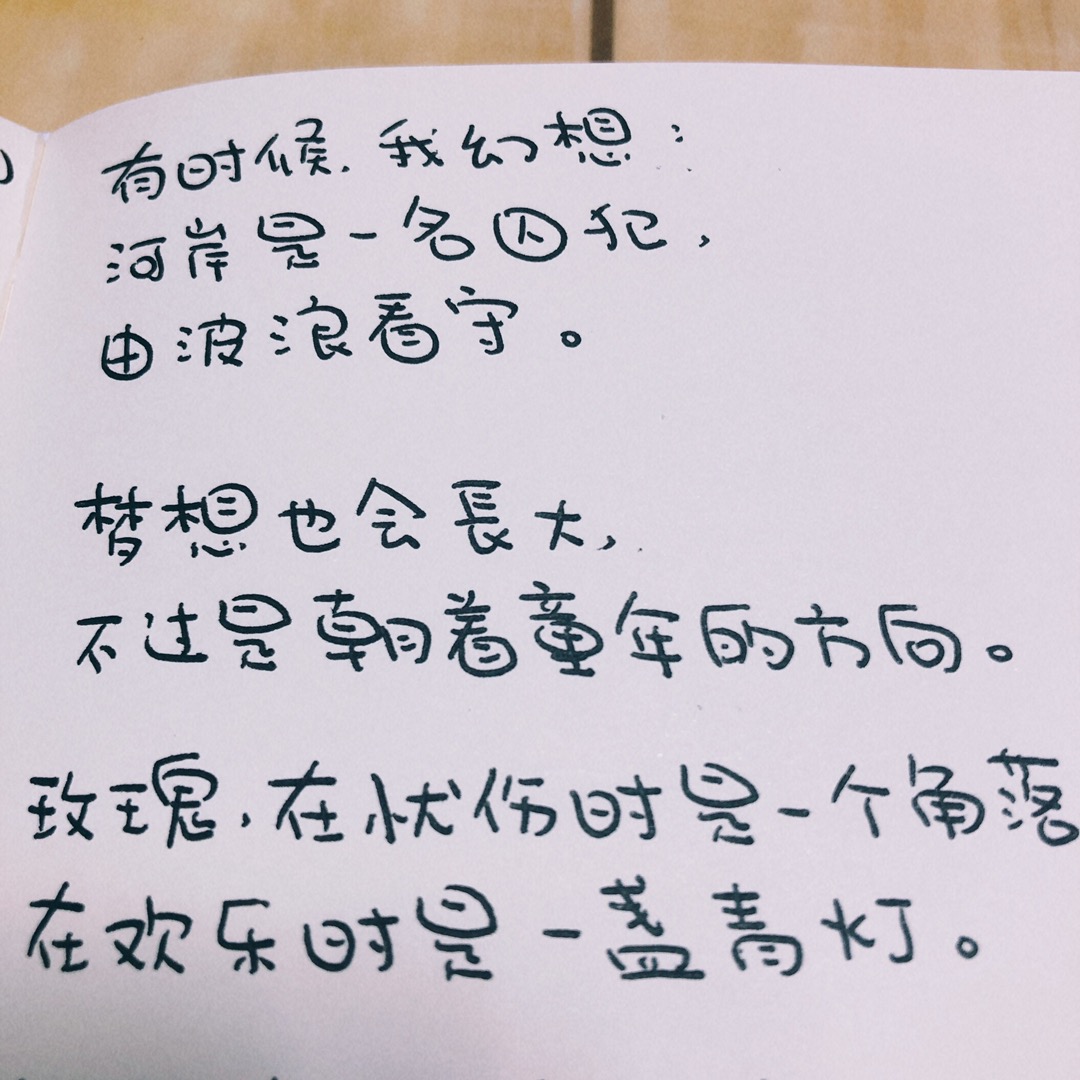 有时候，我幻想：
河岸是一名囚犯，
由波浪看守。
梦想也会長大，
不过是朝着童年的方向。
玫瑰，在忧伤时是一个角落
在欢乐时是一盏青灯。